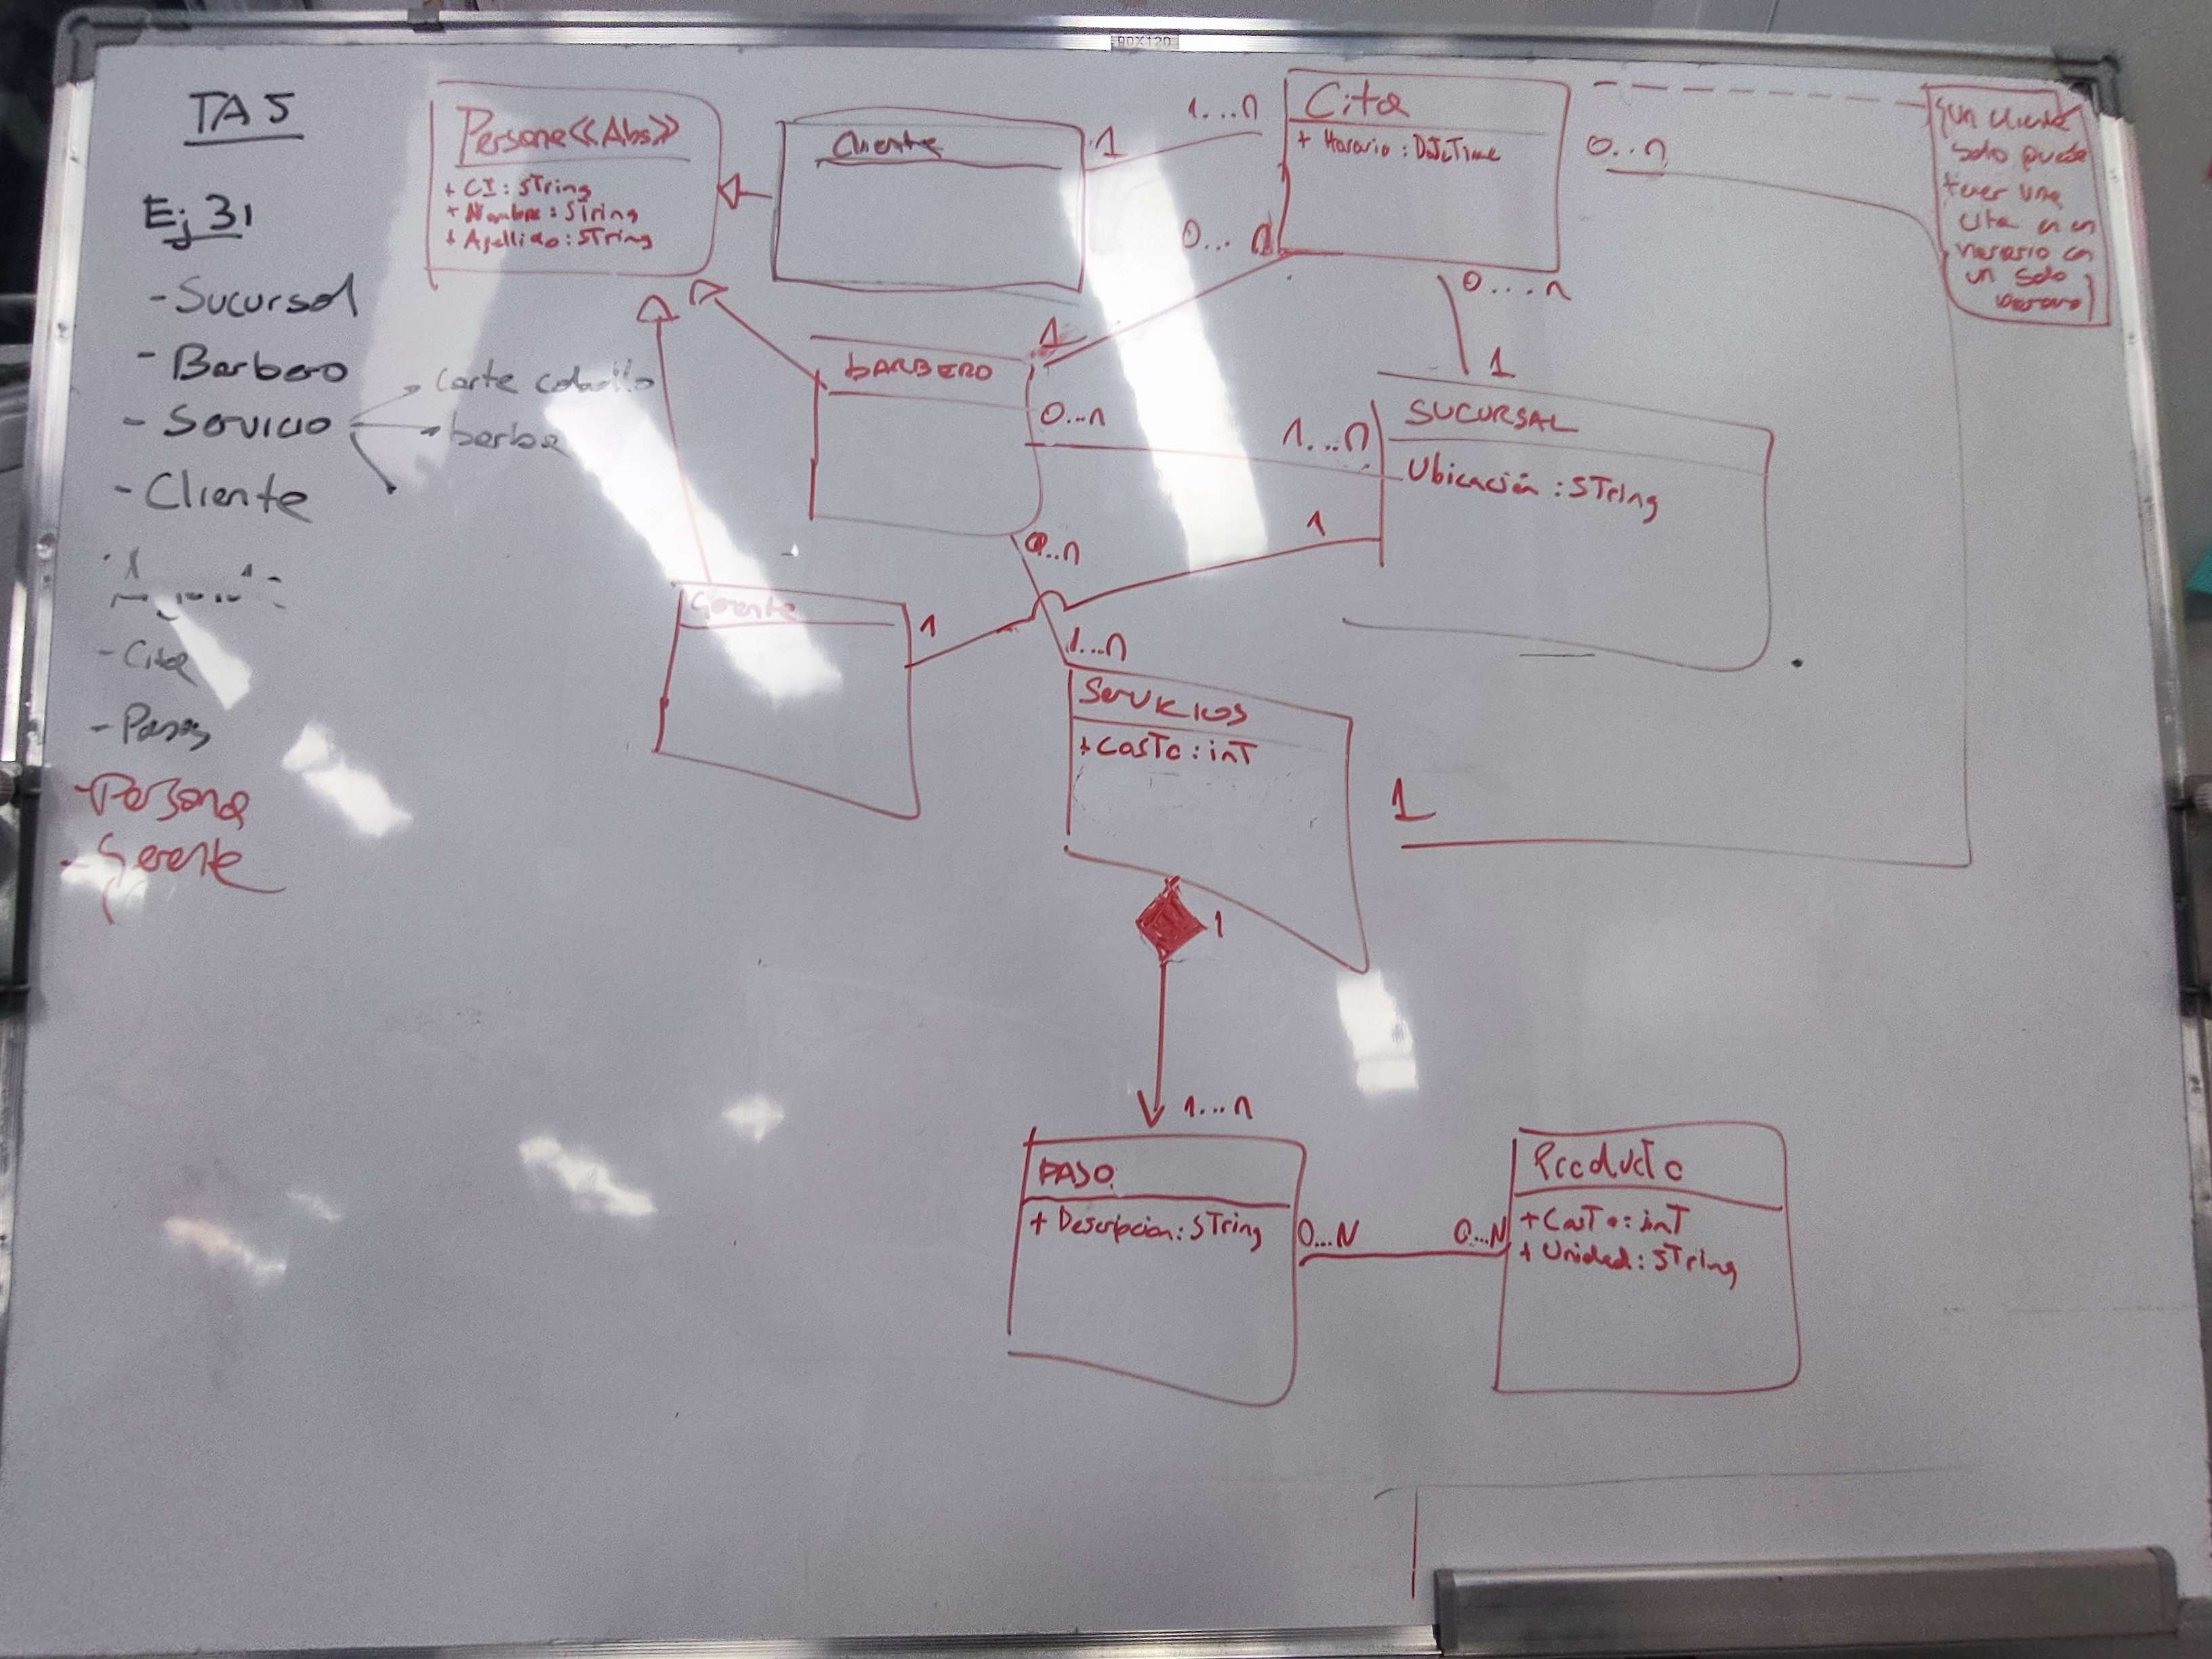 90X120
TA 5
Ej 31
- Sucursal
- Barbero
- Servicio
corte cabello
barba
- Cliente
- Cita
- Pasos
- Persona
- Gerente
Persona <<Abs>>
+ CI : STring
+ Nombre : STring
+ Apellido : STring
Cliente
1
1...n
Cita
+ Horario : DateTime
0..n
0... n
0....n
un cliente
solo puede
tener una
cita en un
horario con
un solo
barbero
1
BARBERO
0...n
1...n
1
SUCURSAL
Ubicación : STring
0..n
1
Gerente
1
1...n
Servicios
+ CosTo : inT
1
1
1...n
PASO
+ Descripcion : STring
0...N
0...N
ProducTo
+ CosTo : inT
+ Unidad : STring